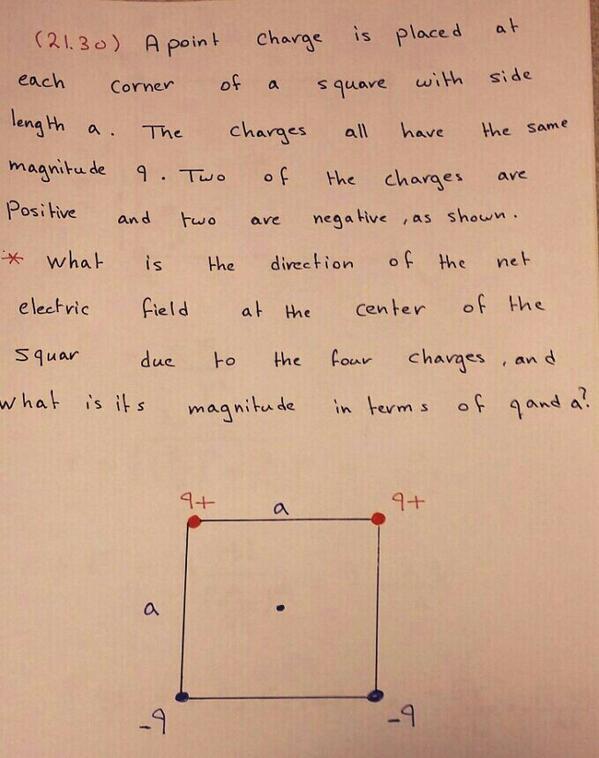 (21.30) A point charge is placed at
each corner of a square with side
length a. The charges all have the same
magnitude q. Two of the charges are
Positive and two are negative, as shown.
* what is the direction of the net
electric field at the center of the
Squar due to the four charges, and
what is its magnitude in terms of q and a?
q+ a q+
a
-q -q